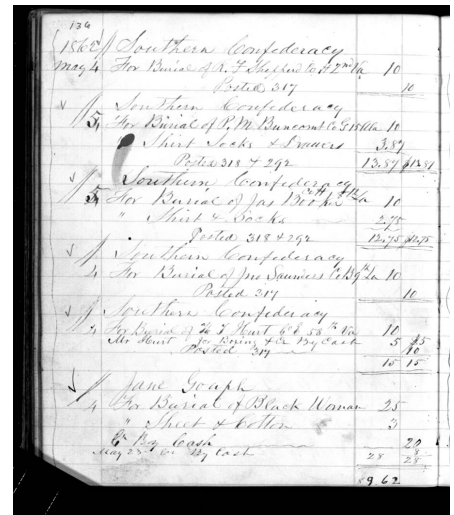 136
1862 Southern Confederacy
May 4 For Burial of R. F. Shepherd Co H 2nd Va 10
Posted 317 10
Southern Confederacy
5 For Burial of P. M. Buncomb Co G 18 Ala 10
Shirt Socks & Drawers 3.87
Posted 318 & 292 13.87 $13.87
Southern Confederacy
5 For Burial of Jas Booker Co H La 10
" Shirt & Socks 2.75
Posted 318 & 292 12.75 $12.75
Southern Confederacy
4 For Burial of Jno Saunders Co B 9th La 10
Posted 317 10
Southern Confederacy
4 For Burial of H. T. Hurt Co E 58th Va 10
Mr Hurt for Boxing & Cr By Cash 5
Posted 317 10
15 15
Jane Gouph
4 For Burial of Black Woman 25
" Sheet & Cotton 3
Cr By Cash 20
May 23rd Cr By Cash 28 8
28
89.62